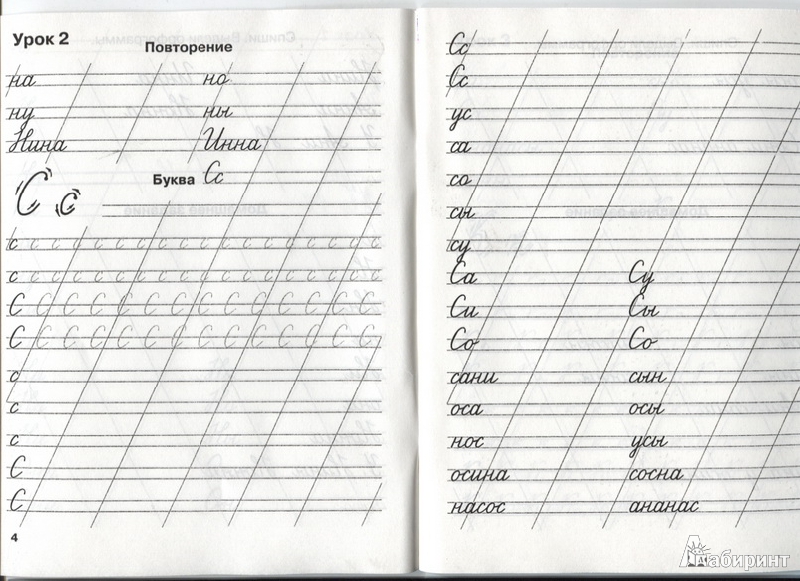 Урок 2
Повторение
на но
ну ны
Нина Инна
Буква Сс
С с
с с с с с с с с с с с с с с с с
с с с с с с с с с с с с с с с с
С С С С С С С С С С С С С С
С С С С С С С С С С С С С С
с
с
с
С
С
4
Сс
Сс
ус
са
со
сы
су
Са Су
Си Сы
Со Со
сани сын
оса осы
нос усы
осина сосна
насос ананас
Лабиринт